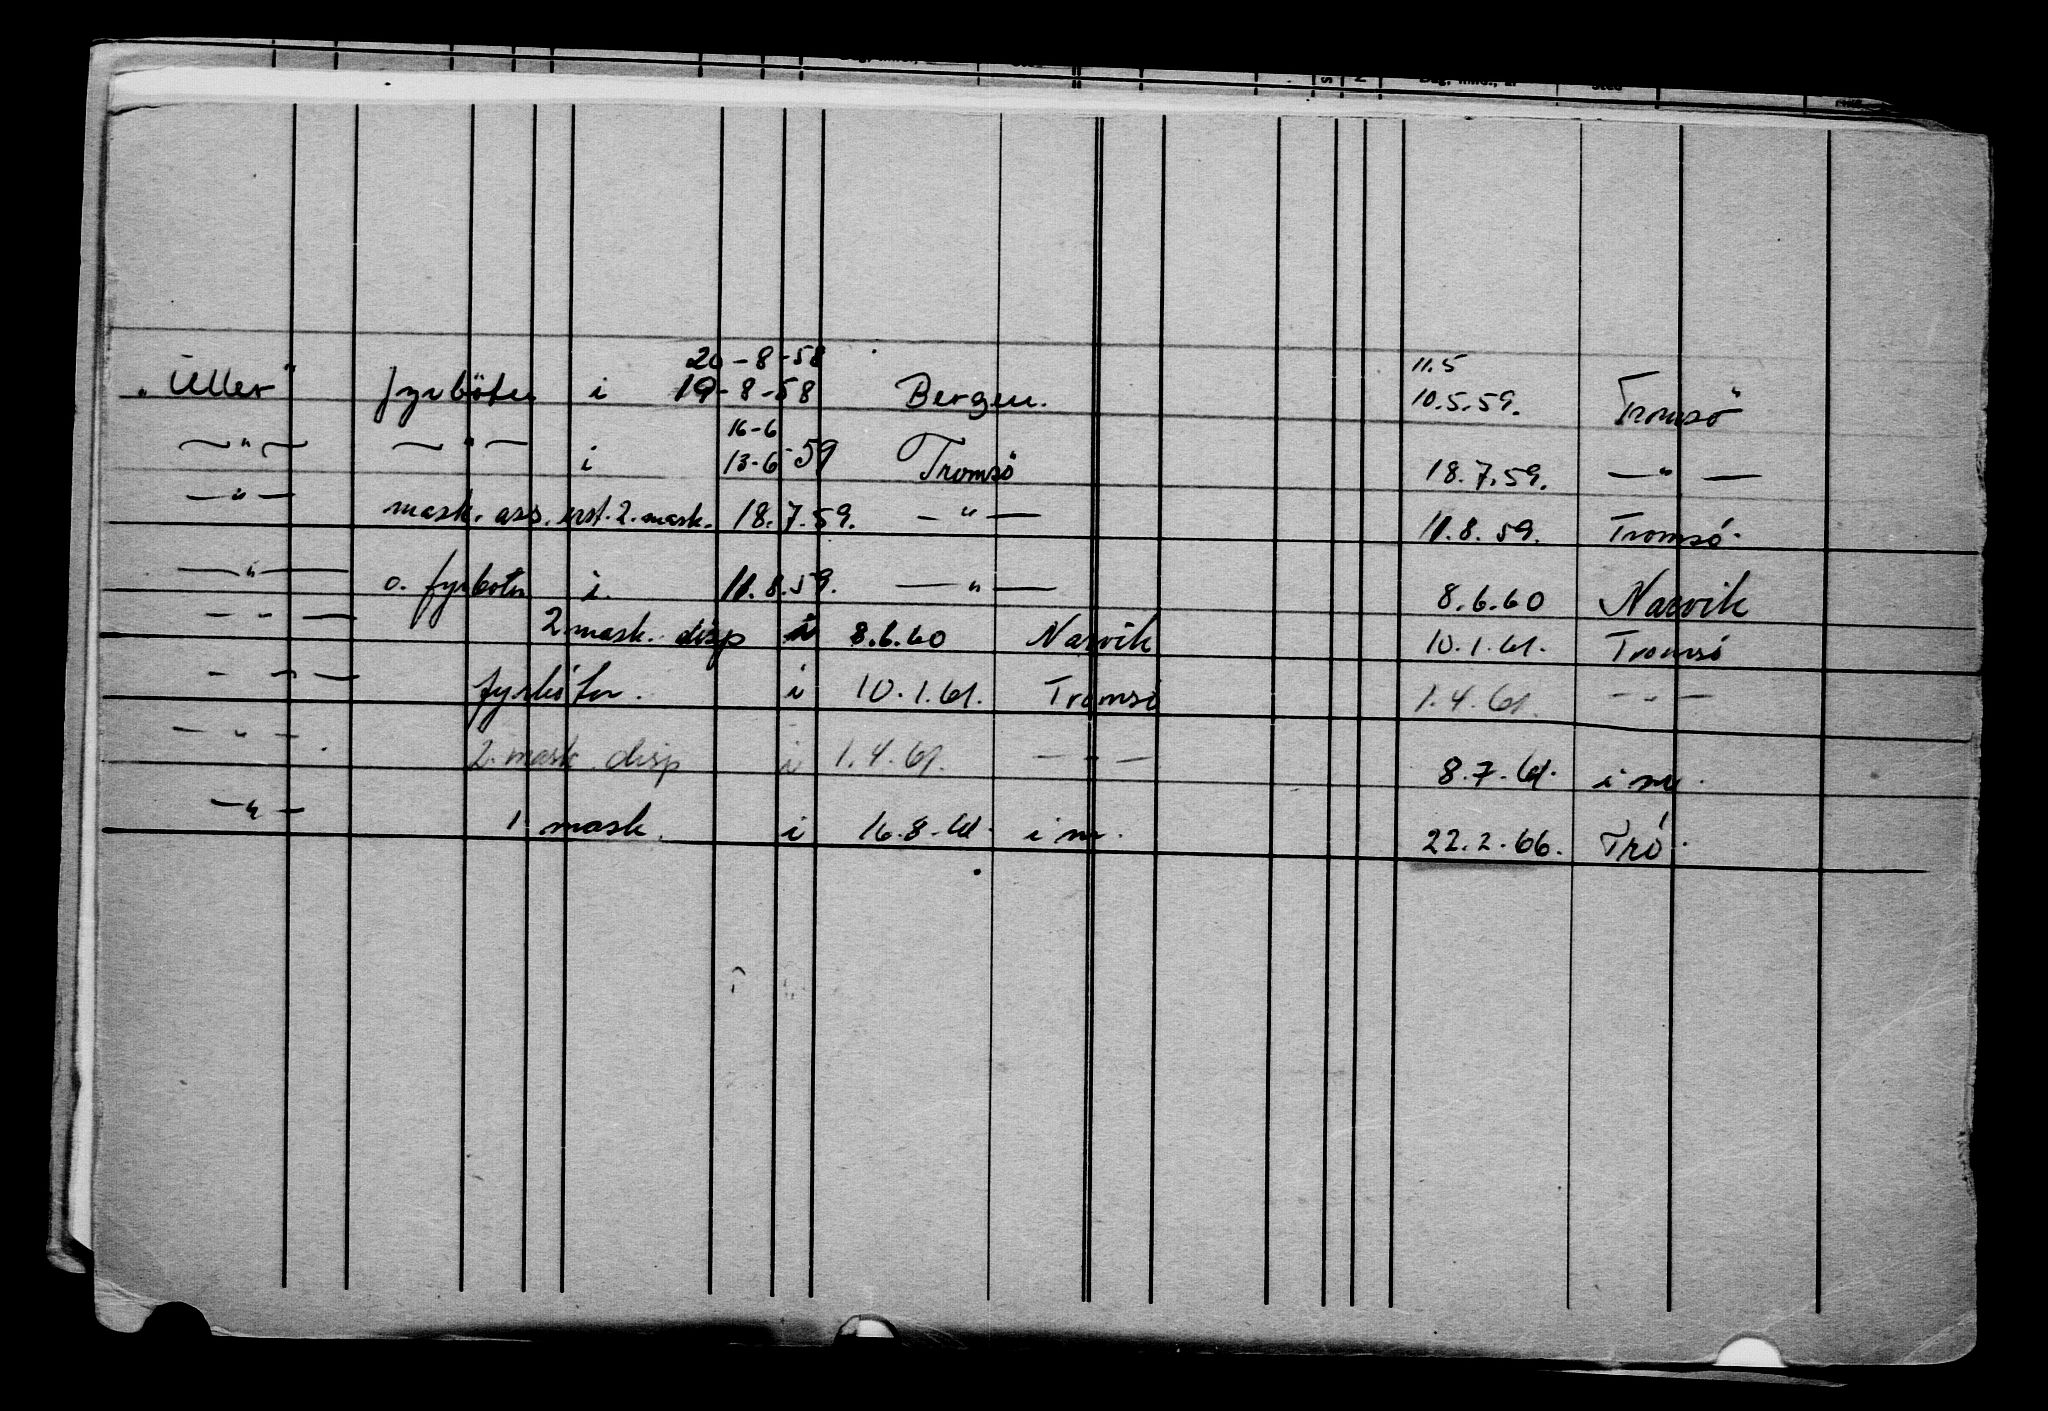 Sted
S
N
Sted
20-8-58 11.5
"Uller" fyrböter i 19-8-58 Bergen. 10.5.59. Tromsö
16-6
—"— —"— i 13-6-59 Tromsö 18.7.59. —"—
—"— mask. ass. erst. 2. mask. 18.7.59. —"— 11.8.59. Tromsö.
—"— o. fyrboter i. 11.8.59. —"— 8.6.60 Narvik
—"— 2 mask. disp i 8.6.60 Narvik 10.1.61. Tromsö
—"— fyrböter. i 10.1.61. Tromsö 1.4.61. —"—
—"— 2. mask. disp i 1.4.61. —"— 8.7.61. i nr.
—"— 1 mask. i 16.8.61. i nr. 22.2.66. Trö.